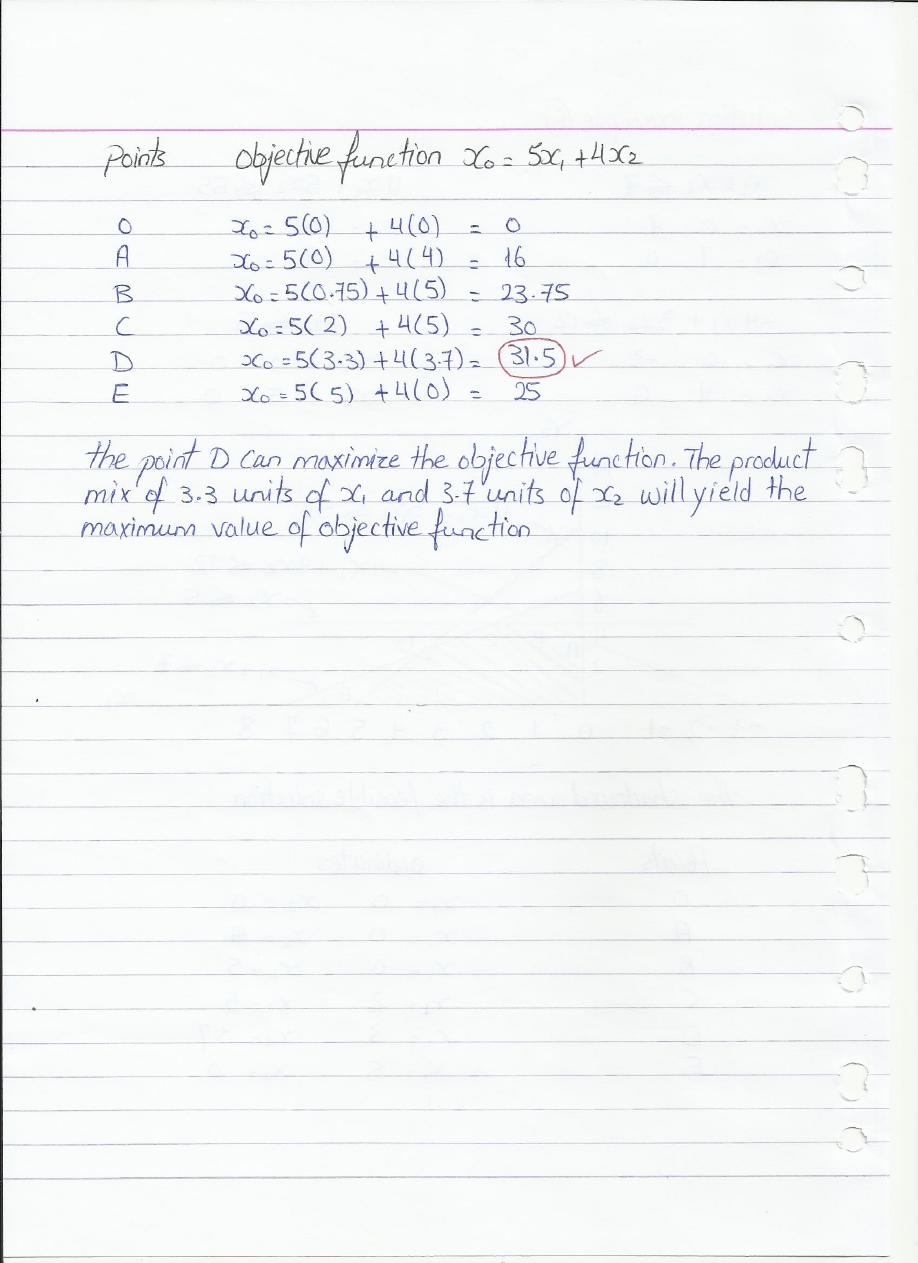 Points Objective function x₀ = 5x₁ + 4x₂
O x₀ = 5(0) + 4(0) = 0
A x₀ = 5(0) + 4(4) = 16
B x₀ = 5(0.75) + 4(5) = 23.75
C x₀ = 5(2) + 4(5) = 30
D x₀ = 5(3.3) + 4(3.7) = 31.5 ✓
E x₀ = 5(5) + 4(0) = 25
the point D can maximize the objective function. The product
mix of 3.3 units of x₁ and 3.7 units of x₂ will yield the
maximum value of objective function